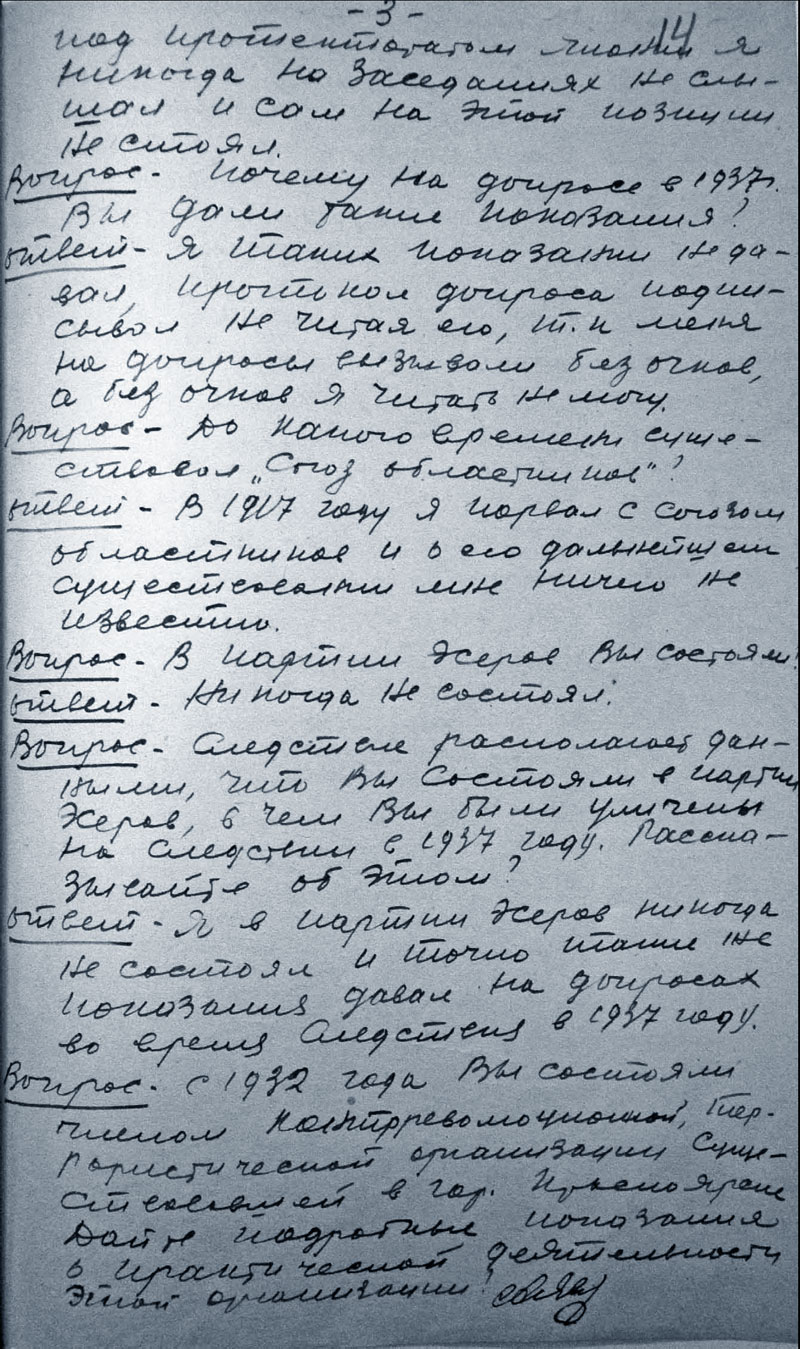 - 3 -
14
под протекторатом Японии я
никогда на заседаниях не слы-
шал и сам на этой позиции
не стоял.
Вопрос - Почему на допросе в 1937 г.
Вы дали такие показания?
ответ - Я таких показании не да-
вал, протокол допроса подпи-
сывал не читая его, т.к меня
на допросы вызывали без очков,
а без очков я читать не могу.
Вопрос - До какого времени суще-
ствовал „Союз областников"?
ответ - В 1917 году я порвал с союзом
областников и о его дальнейшем
существовании мне ничего не
известно.
Вопрос - В партии эсеров Вы состояли?
ответ - Никогда не состоял.
Вопрос - Следствие располагает дан-
ными, что Вы состояли в партии
эсеров, в чем Вы были уличены
на следствии в 1937 году. Расска-
зывайте об этом?
ответ - Я в партии эсеров никогда
не состоял и точно такие же
показания давал на допросах
во время следствия в 1937 году.
Вопрос - с 1932 года Вы состояли
членом контрреволюционной, тер-
рористической организации суще-
ствовавшей в гор. Красноярске
Дайте подробные показания
о практической деятельности
этой организации?